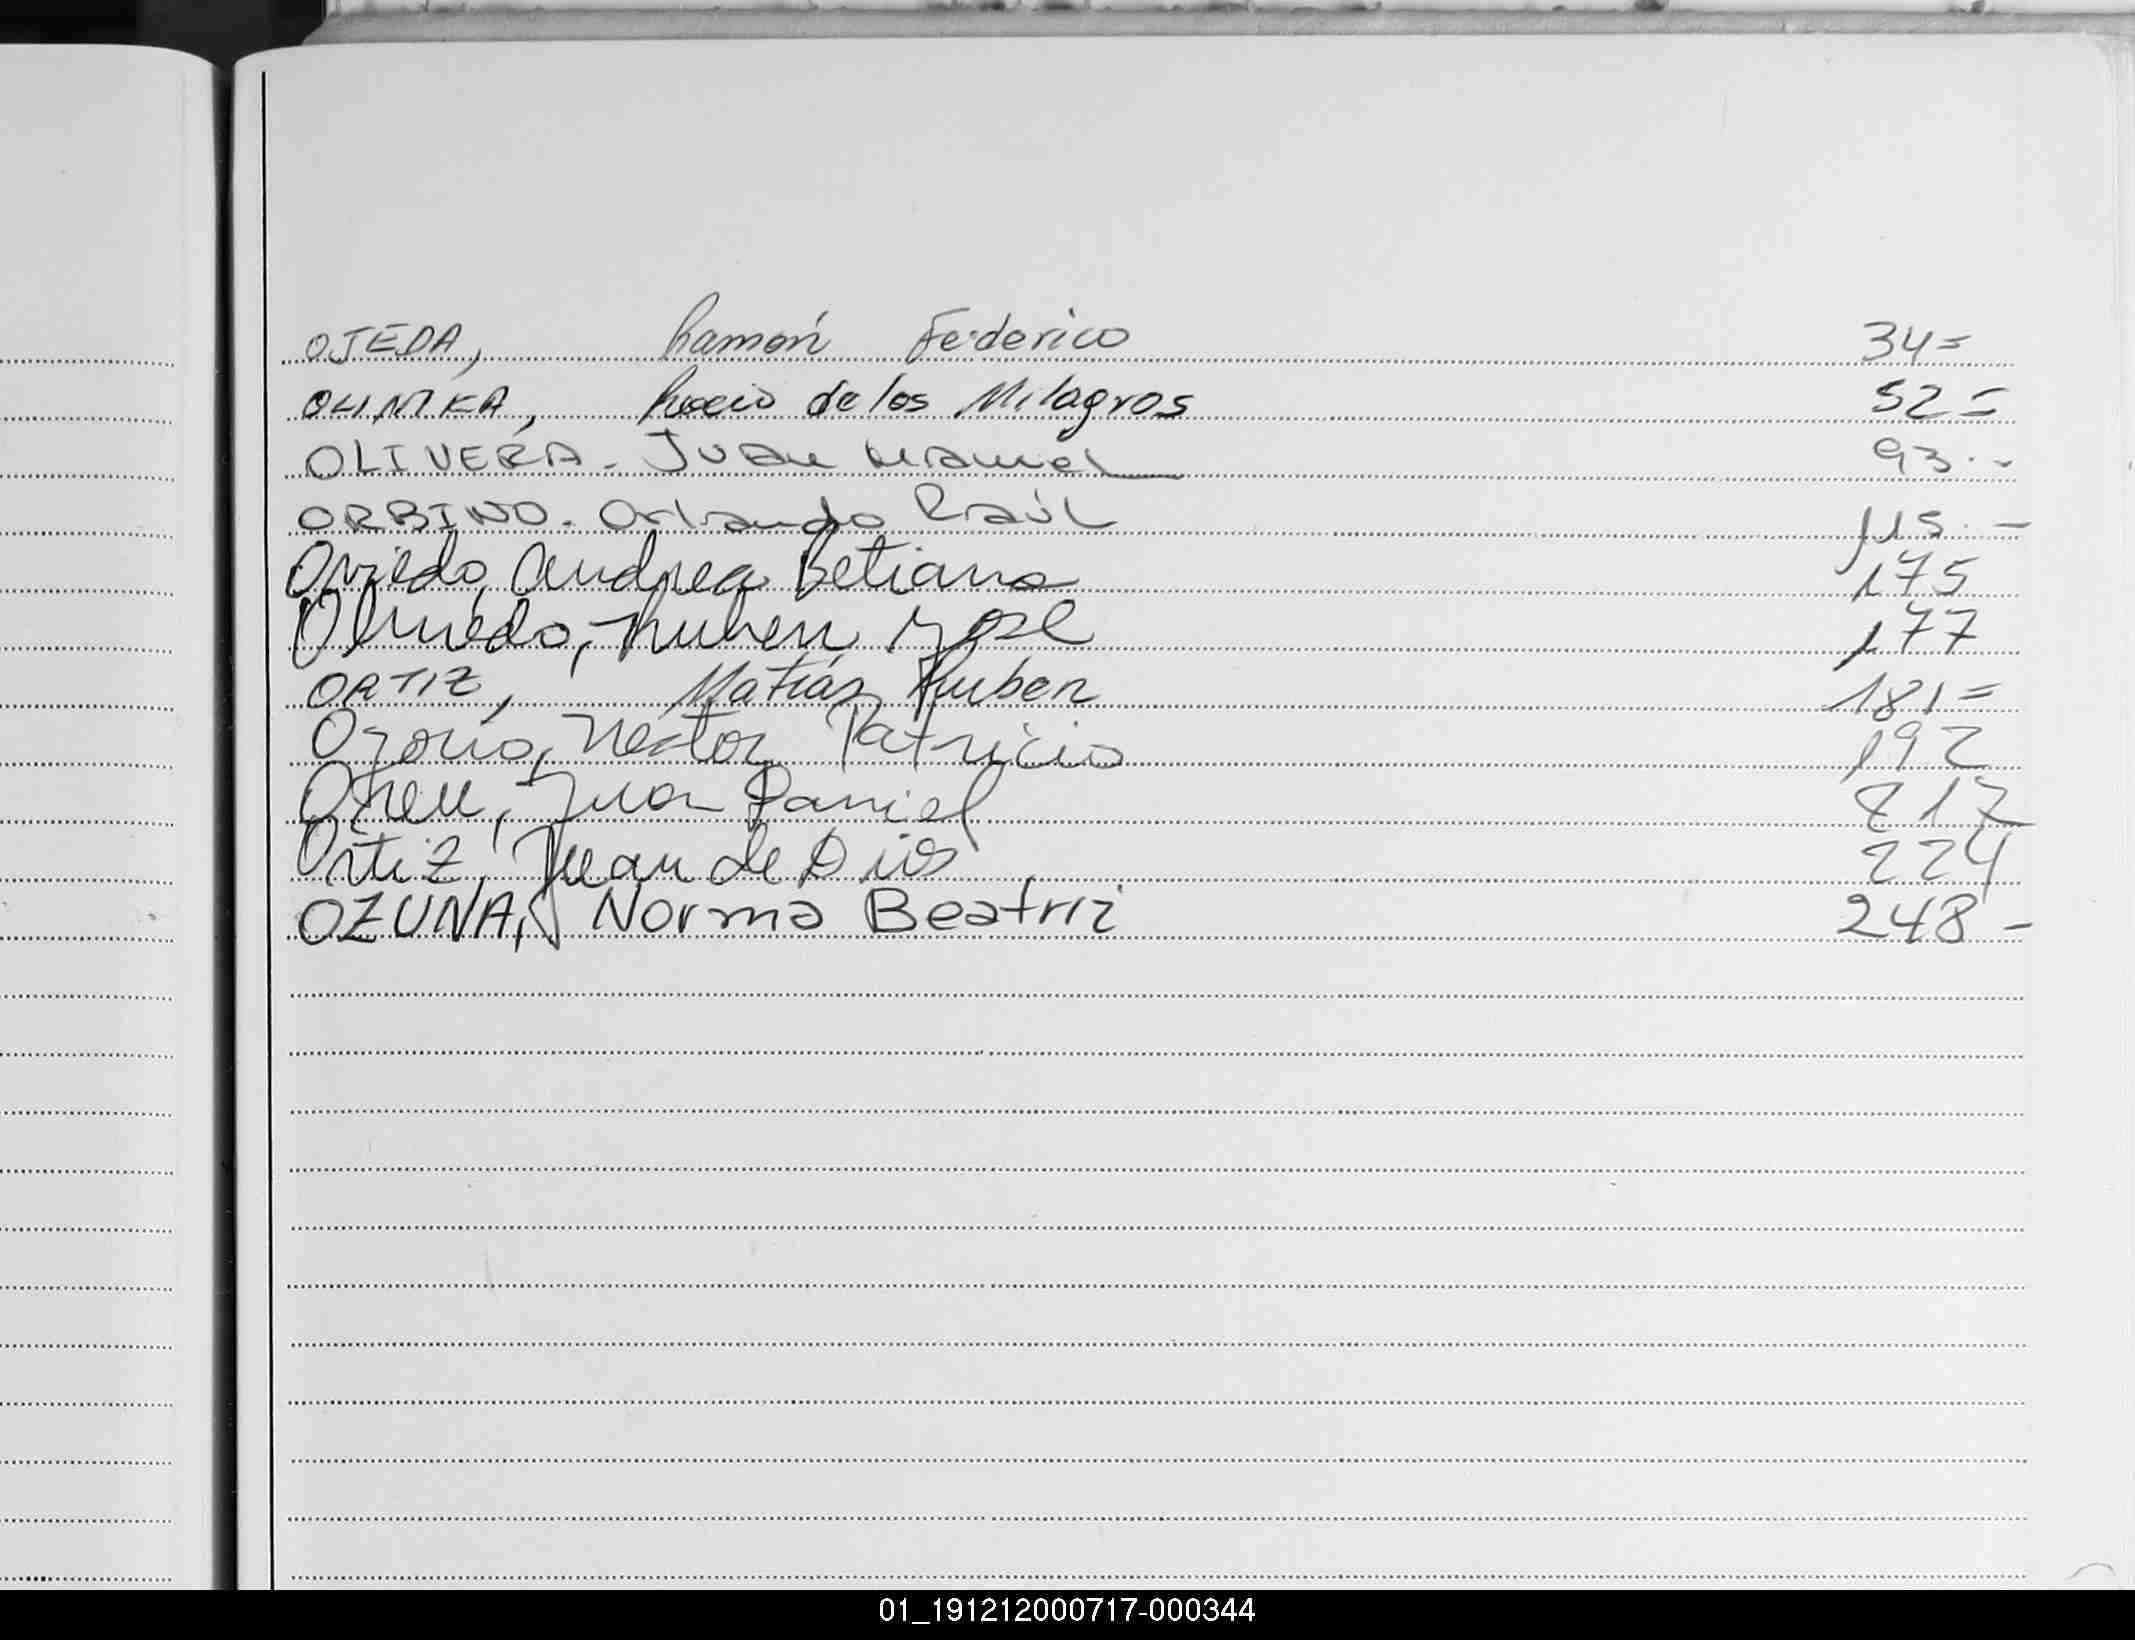 OJEDA, Ramón Federico 34=
OLINKA, Rocio de los Milagros 52=
OLIVERA - Juan Manuel 93.-
ORBINO - Orlando Raúl 115.-
Oviedo, Andrea Betiana 175
Olmedo, Ruben Jose 177
ORTIZ, Matías Ruben 181=
Ozorio, Nestor Patricio 192
Juan Daniel 217
Ortiz, Juan de Dios 224
OZUNA, Norma Beatriz 248-
01_191212000717-000344